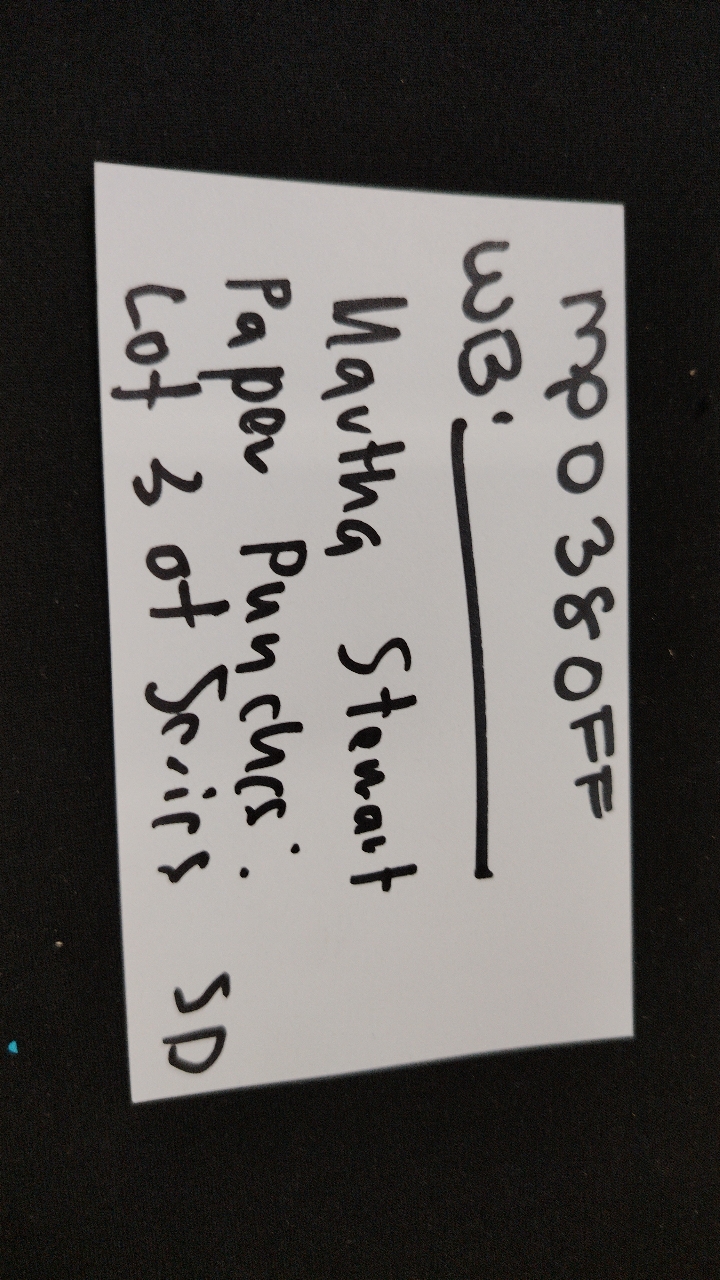 MP0380FF
WB:
Martha Stewart
Paper Punches:
Lot 3 of SD